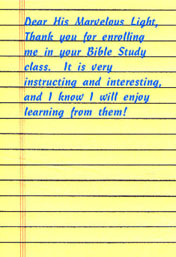 Dear His Marvelous Light,
Thank you for enrolling
me in your Bible Study
class. It is very
instructing and interesting,
and I know I will enjoy
learning from them!